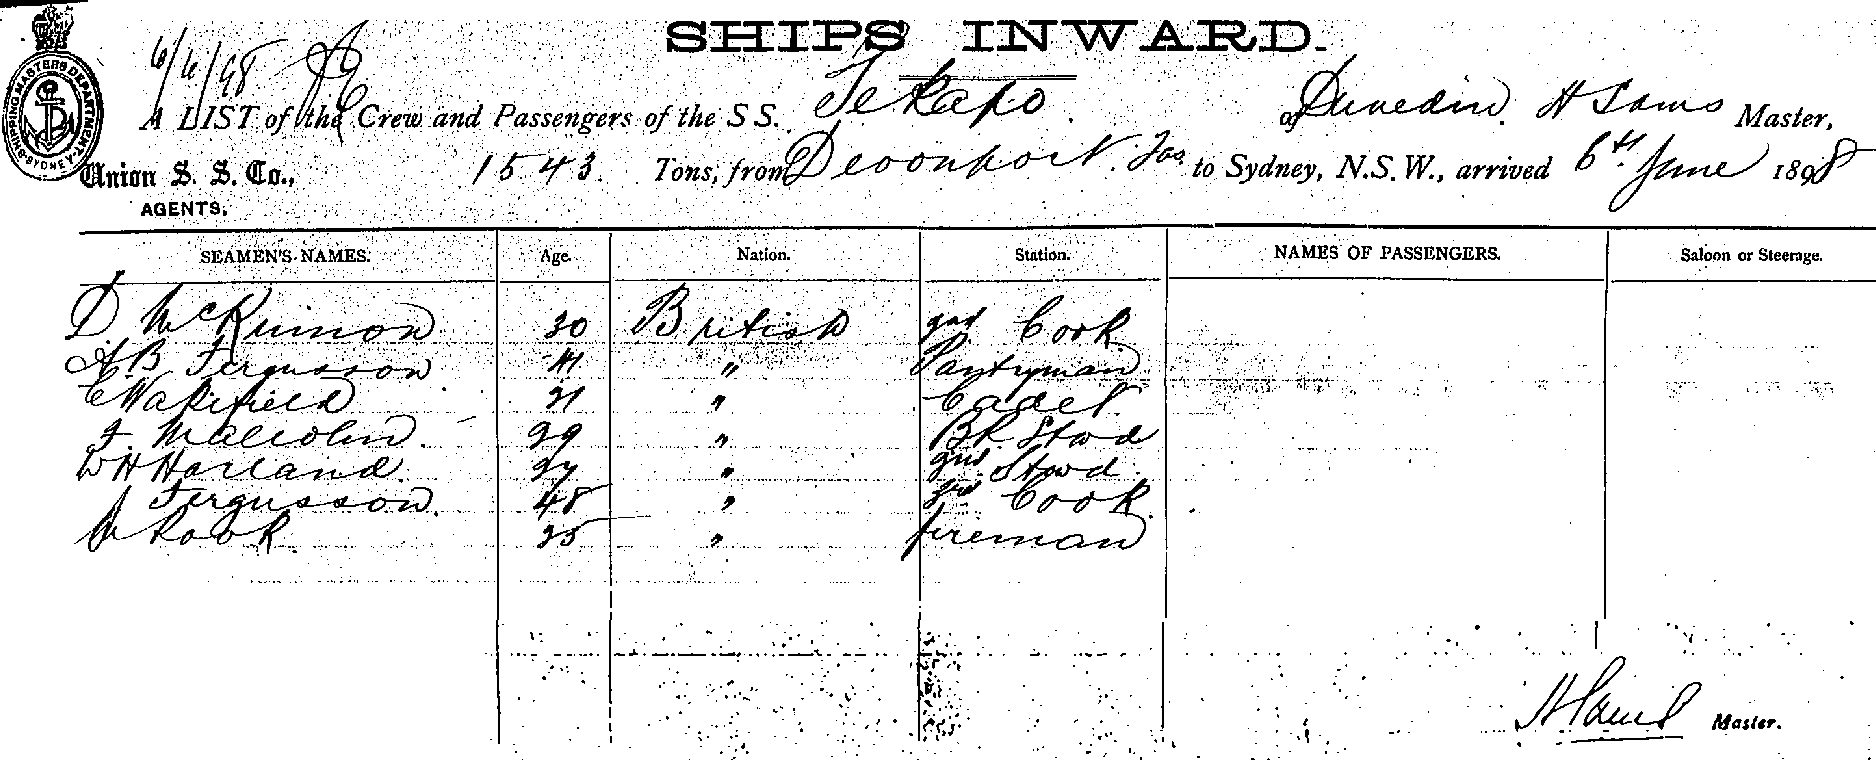 SHIPS INWARD.
6/6/98
A LIST of the Crew and Passengers of the S S. Tekapo of Dunedin. H Sams Master,
Union S. S. Co., 1543. Tons, from Devonport. Tas to Sydney, N.S.W., arrived 6th June 1898
AGENTS.
SHIPPING MASTERS DEPARTMENT SYDNEY
SEAMEN'S NAMES. Age. Nation. Station. NAMES OF PASSENGERS. Saloon or Steerage.
D McKinnon 30 British 2nd Cook
A B Fergusson 41 " Pantryman
C Wakefield 21 " Cadet.
F. Malcolm. 29 " BR Stwd
W H Harland. 27 " 2nd. Stwd.
Fergusson. 48 " 3rd Cook
W Rook 25 " fireman
Master.